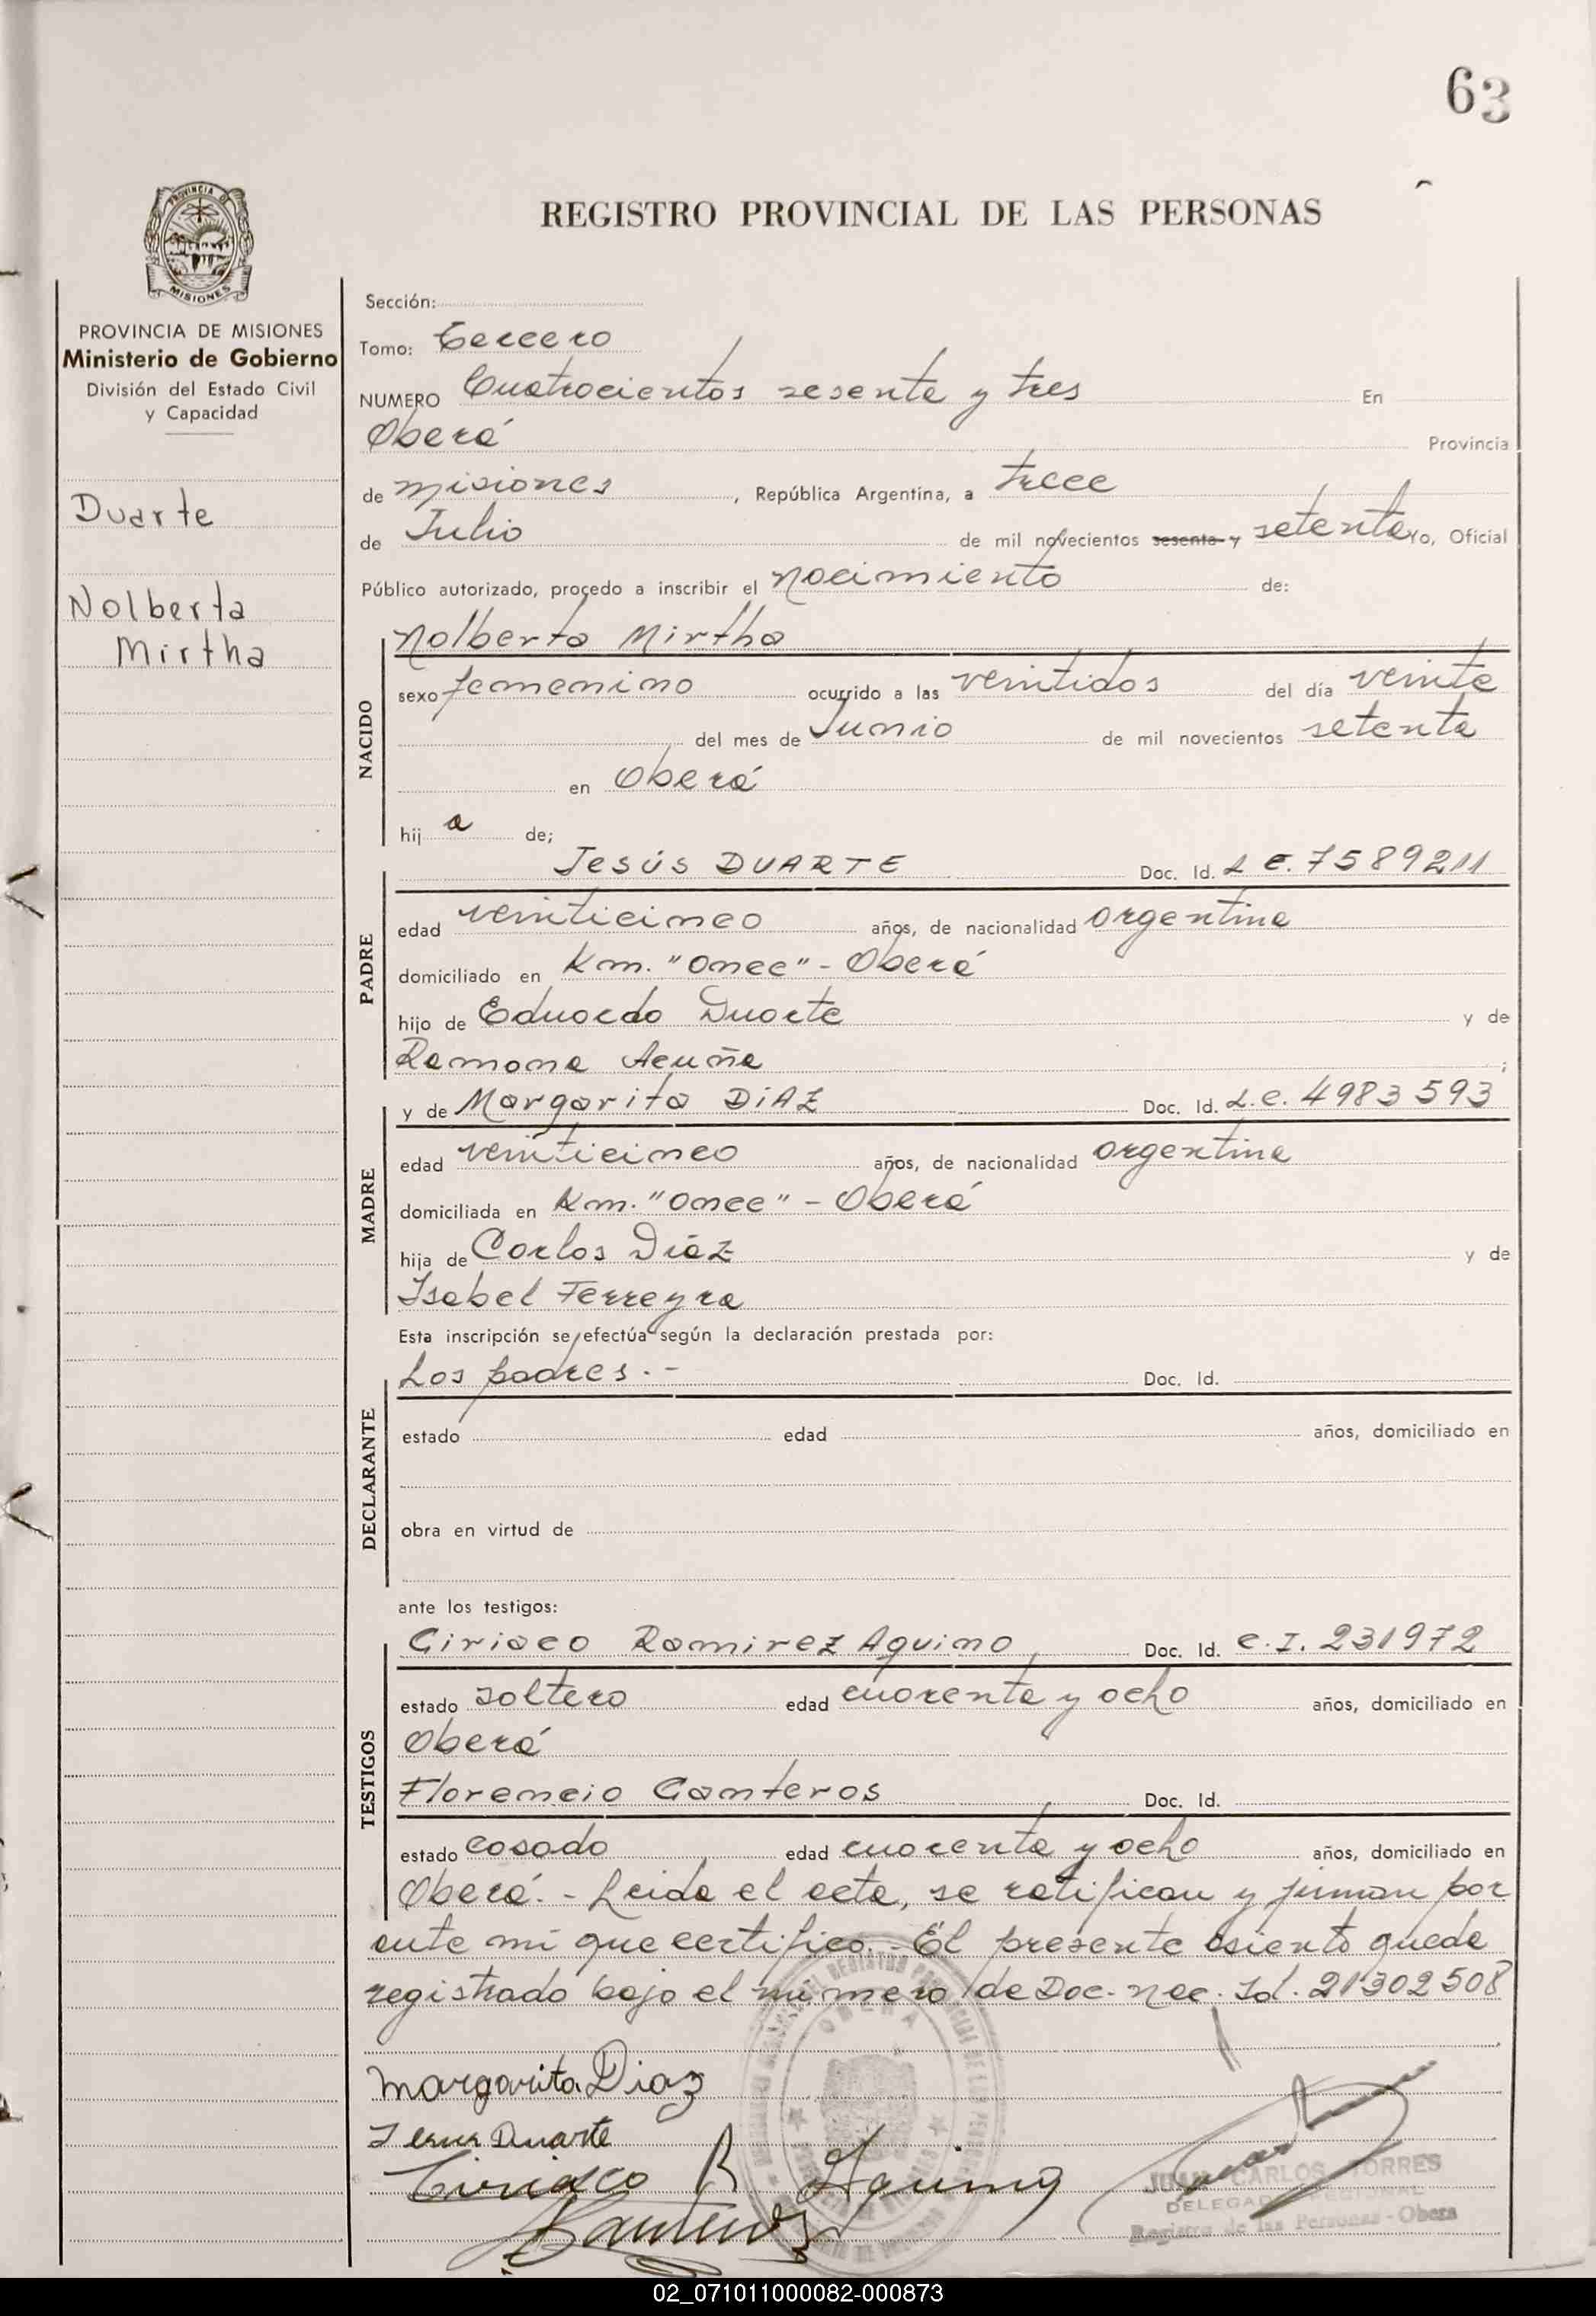 63
REGISTRO PROVINCIAL DE LAS PERSONAS
PROVINCIA DE
MISIONES
PROVINCIA DE MISIONES
Ministerio de Gobierno
División del Estado Civil
y Capacidad
Duarte
Nolberta
Mirtha
Sección:
Tomo: Tercero
NUMERO Cuatrocientos sesenta y tres En
Oberá Provincia
de Misiones, República Argentina, a trece
de Julio de mil novecientos sesenta y setenta Yo, Oficial
Público autorizado, procedo a inscribir el nacimiento de:
NACIDO
Nolberta Mirtha
sexo femenino ocurrido a las veintidos del día veinte
del mes de Junio de mil novecientos setenta
en Oberá
hij a de;
PADRE
Jesús DUARTE Doc. Id. L.E. 7589211
edad veinticinco años, de nacionalidad argentina
domiciliado en Km. "Once" - Oberá
hijo de Eduardo Duarte y de
Ramona Acuña ;
MADRE
y de Margarita DiAZ Doc. Id. L.C. 4983593
edad veinticinco años, de nacionalidad argentina
domiciliada en Km. "Once" - Oberá
hija de Carlos Díaz y de
Isabel Ferreyra
Esta inscripción se efectúa según la declaración prestada por:
DECLARANTE
Los padres.- Doc. Id.
estado edad años, domiciliado en
obra en virtud de
ante los testigos:
TESTIGOS
Ciriaco Ramirez Aquino Doc. Id. C.I. 231972
estado soltero edad cuarenta y ocho años, domiciliado en
Oberá
Florencio Canteros Doc. Id.
estado casado edad cuarenta y ocho años, domiciliado en
Oberá.- Leida el acta, se ratifican y firman por
ante mí que certifico.- El presente asiento queda
registrado bajo el número de Doc. nac. Id. 21302508
OBERA
Margarita Diaz
Jesus Duarte
Ciriaco R Aquino
Canteros
JUAN CARLOS TORRES
DELEGADO REGIONAL
Registro de las Personas - Obera
02_071011000082-000873